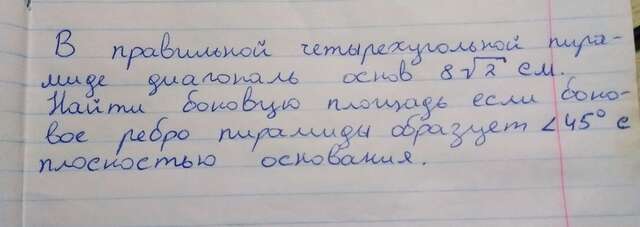 В правильной четырехугольной пира-
миде диагональ основ 8√2 см.
Найти боковую площадь если боко-
вое ребро пирамиды образует ∠45° с
плоскостью основания.